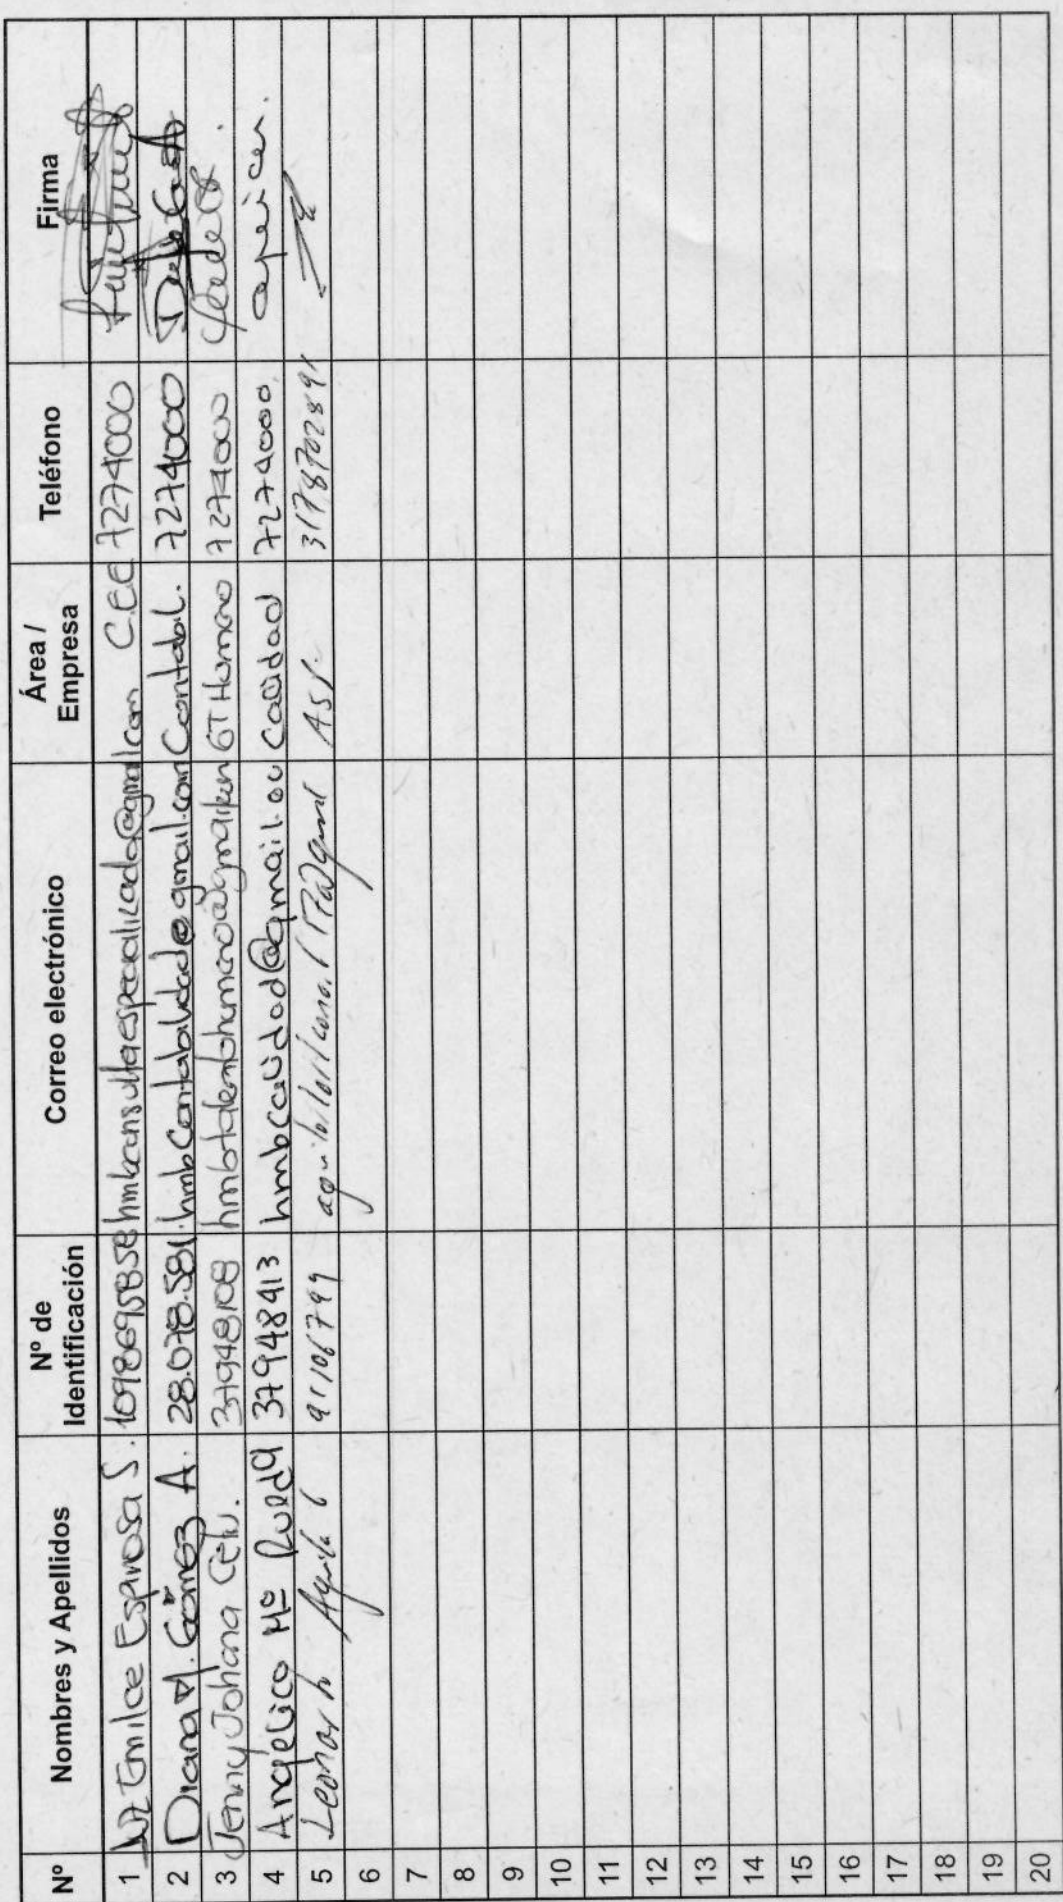 Nº Nombres y Apellidos Nº de Identificación Correo electrónico Área / Empresa Teléfono Firma
1 Luz Emilce Espinosa S. hmbconsultaespecializada@gmail.com C.EE 7274000
2 Diana M. Gómez A. 28.078.581 hmbcontabilidad@gmail.com Contabil. 7274000
3 Jenny Johana 37948108 hmbtalentohumano@gmail.com GT Humano 7274000
4 Angelica Mº Rueda 37948413 hmbcalidad@gmail.co Calidad 7274000
5 Leonardo Aguilar 91106799 3178702891
6
7
8
9
10
11
12
13
14
15
16
17
18
19
20